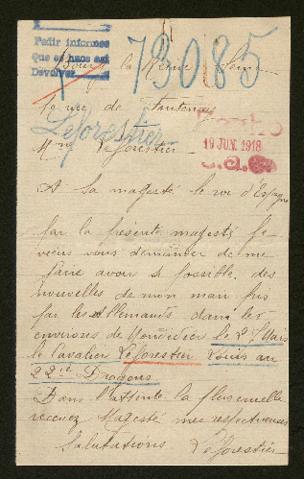 Pedir informes
Que se haga así
Devolver
73085
Bourg la Reine Seine
rue de Fontenay
Leforestier
Mme Leforestier
19 JUN. 1918
A Sa magesté le roi d'Espagne
par la présente magesté Je
viens vous demander de me
faire avoir si possible des
nouvelles de mon mari pris
par les Allemands dans les
environs de Mondidier le 30 Mars
le cavalier Leforestier Louis au
22e Dragons
Dans l'attente la plus cruelle
recevez Magesté mes respectueuses
Salutations Leforestier